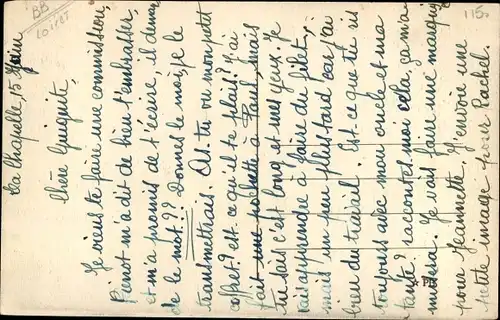 BB
Loiret
115
La Chapelle, 15 Juin
Chère Guiguite,
Je viens te faire une commission,
Pinot m'a dit de bien t'embrasser,
et m'a promis de t'écrire, il
de le mot?? Donnes le moi, je le
transmettrais. As-tu vu mon petit
coffret? est ce qu'il te plaît? j'ai
fait une pochette à Paul, mais
tu sais c'est long et mes yeux. Je
vais apprendre à faire du filet,
mais un peu plus tard car j'ai
bien du travail. Est ce que tu ris
toujours avec mon oncle et ma
tante? racontes moi cela, ça m'a
musera. Je vais faire une
pour Jeannette. J'envoie une
petite image pour Rachel.